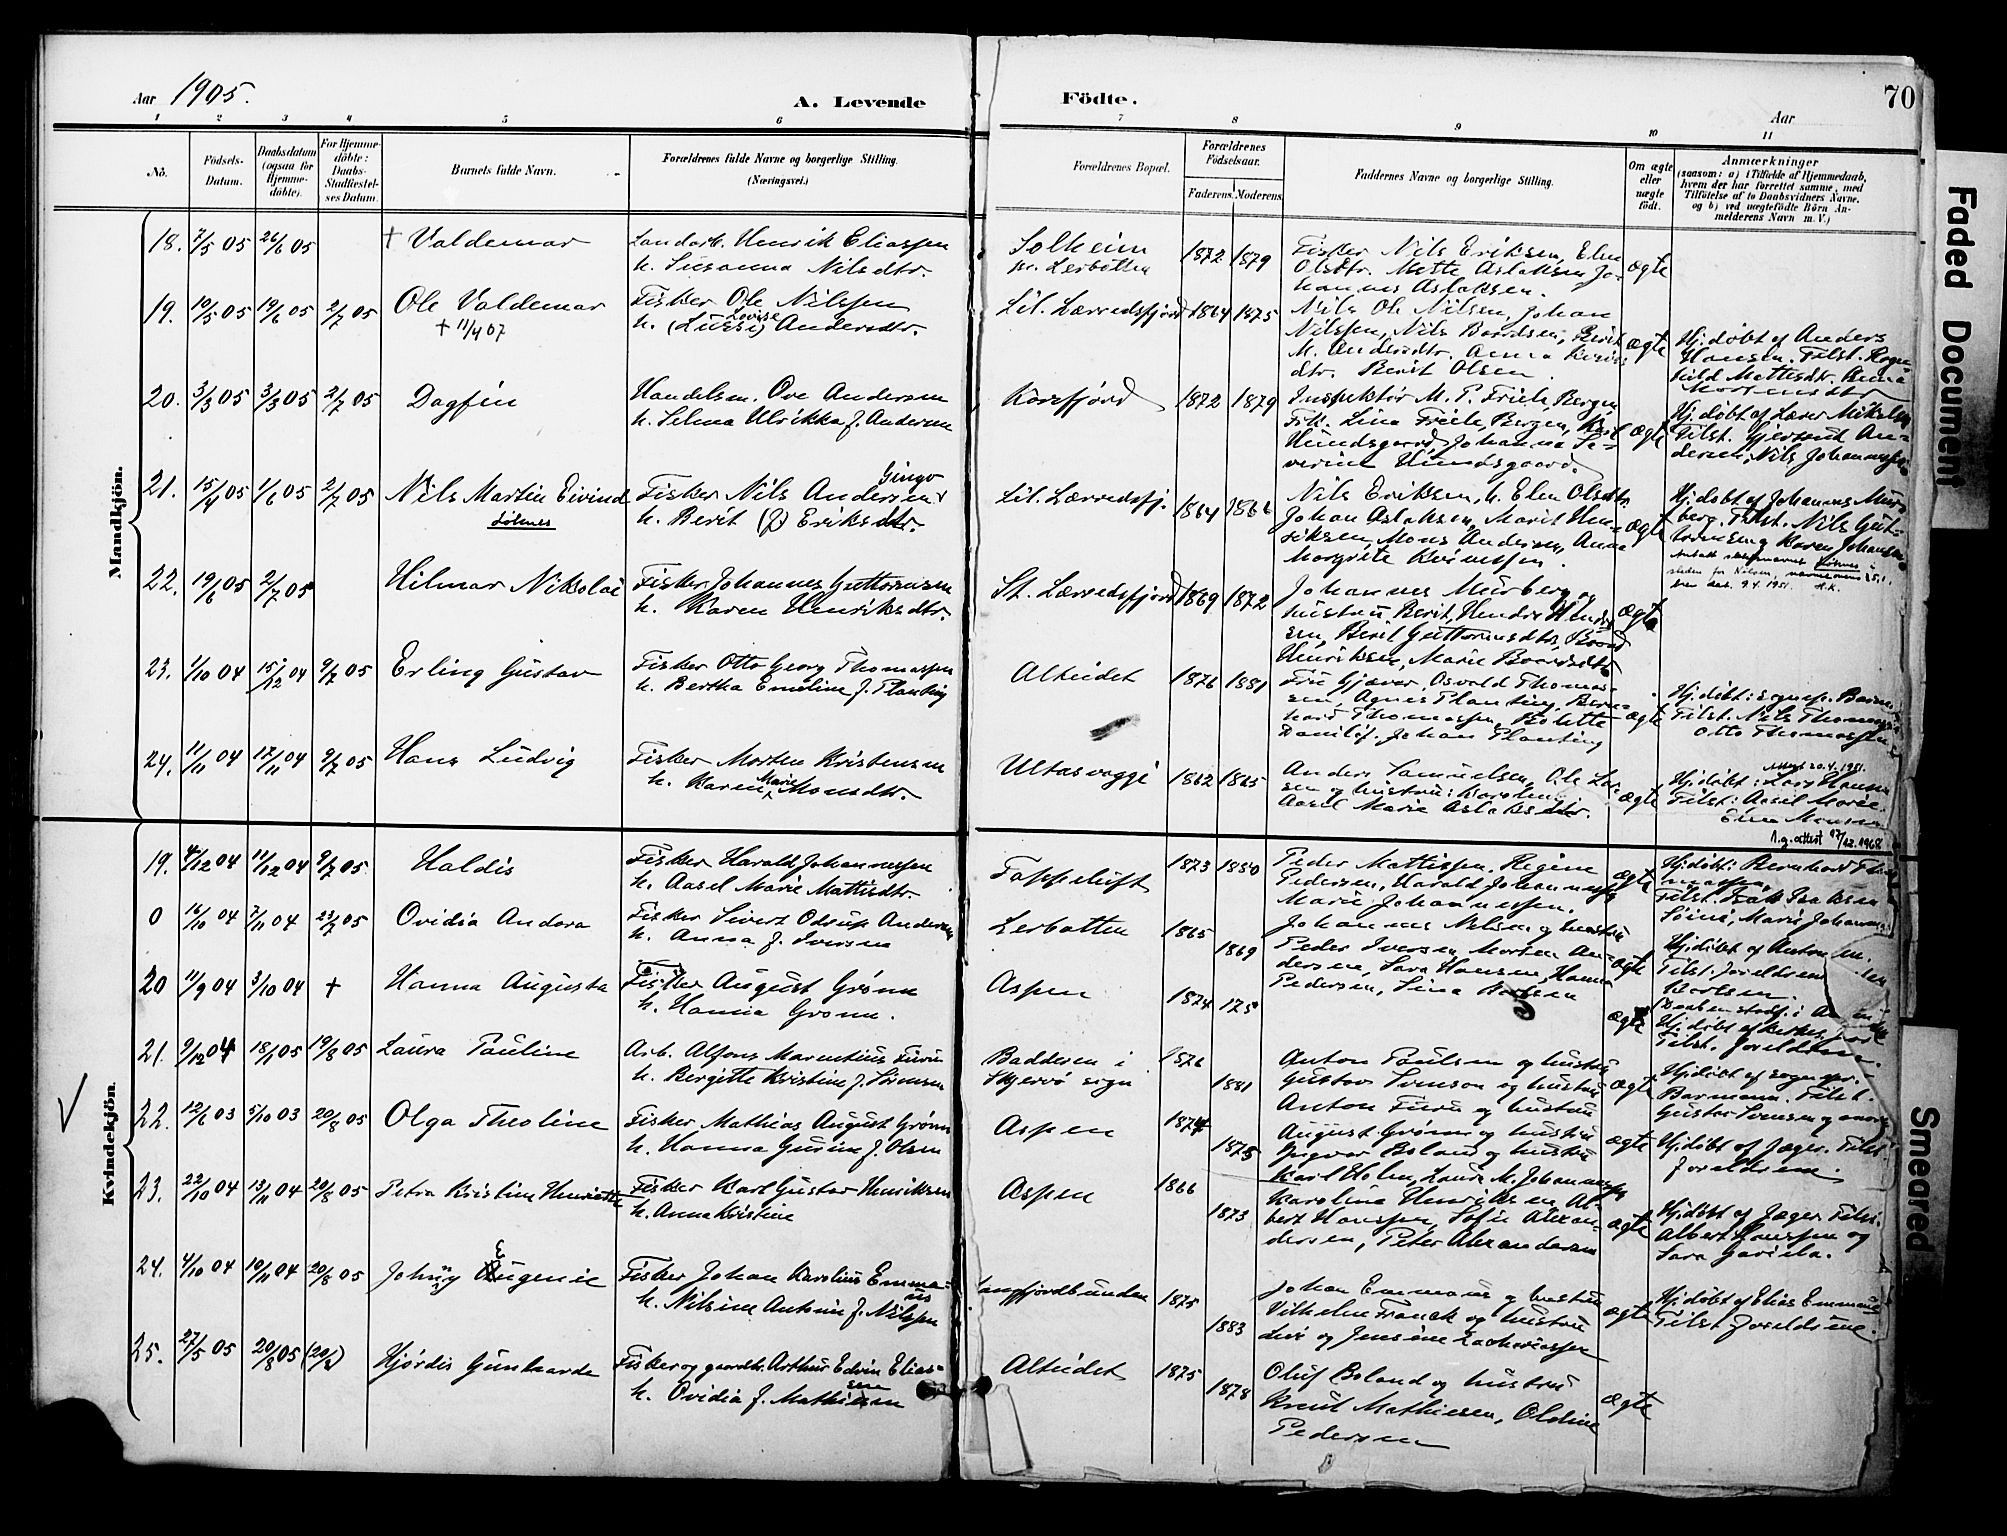 Aar 1905.
A. Levende
Födte.
Aar
70
1 2 3 4 5 6 7 8 9 10 11
No.
Födsels-
Datum.
Daabsdatum
(ogsaa for
Hjemme-
döbte).
For Hjemme-
döbte:
Daabs-
Stadfæstel-
ses Datum.
Barnets fulde Navn.
Forældrenes fulde Navne og borgerlige Stilling.
(Næringsvei.)
Forældrenes Bopæl.
Forældrenes
Födselsaar.
Faderens. Moderens.
Faddernes Navne og borgerlige Stilling.
Om ægte
eller
uægte
født.
Anmærkninger
(saasom: a) i Tilfælde af Hjemmedaab,
hvem der har forrettet samme, med
Tilföielse af to Daabsvidners Navne.
og b) ved uægtefödte Börn An-
melderens Navn m. V.)
Mandkjön.
18. 7/5 05 † Valdemar
Henrik Eliassen
h. Susanna Nilsdtr.
Solheim
1872 1879
Fisker Nils Eriksen, Elen
Olsdtr. Mette Aslaksen, Jo-
hannes Aslaksen.
ægte
19. 19/5 05 19/6 05 2/7 05 Ole Valdemar
† 11/4 07
Fisker Ole Nilssen
Lovise
h. (Lussi) Andersdtr.
Lil. Lærredsfjord 1864 1875
Nils Ol. Nilsen, Johan
Nilssen, Nils Baardsen, Berit
M. Andersdtr. Anna
dtr. Berit Olsen
ægte
Hj. døbt af Anders
Hansen. Tilst. Ragn-
hild Mattisdtr.
20. 3/3 05 3/3 05 2/7 05 Dagfin
Handelsm. Ove Andersen
h. Selma Ulrikka f. Andersen
Korsfjord 1872 1879
Inspektør M. P. Friele, Bergen
Frk. Lina Friele, Bergen, Karl
Hundsgaard, Johanna Se-
verine Hundsgaard.
ægte
Hj. døbt af Lærer Mikelsen
Tilst. Gjertrud An-
dersen, Nils Johannessen
21. 15/4 05 1/6 05 2/7 05 Nils Martin Eivind
Solnes
Gingo
Fisker Nils Andersen
h. Berit (J) Eriksdtr.
Lil. Lærredsfj. 1864 1866
Nils Eriksen, h. Elen Olsdtr.
Johan Aslaksen, Marit Hen-
riksen, Mons Andersen, Anna
Margrete
ægte
Hj. døbt af Johannes Mur-
berg. Tilst. Nils Gut-
tormsen og Karen Johansen
22. 19/6 05 2/7 05 Hilmar Nikolai
Fisker Johannes Guttormsen
h. Karen Henriksdtr.
St. Lærredsfjord 1869 1872
Johannes Murberg og
hustru Berit, Hendrik
sen, Berit Guttormsdtr, Baard
Henriksen, Marie Baardsdtr
ægte
23. 1/10 04 15/12 04 9/7 05 Erling Gustav
Fisker Otto Georg Thomassen
h. Bertha Emeline f. Planting
Alteidet 1876 1881
Fru Gjæver, Osvald Thomas-
sen, Agnes Planting, Bern-
hard Thomassen, Bolette
Danilof. Johan Planting
ægte
Hj. døbt: sognepr. Barman
Tilst. Nils Thomassen
Otto Thomassen
24. 11/11 04 17/11 04 9/7 05 Hans Ludvig
Fisker Morten Kristensen
Marie
h. Karen Monsdtr.
Ultasvaggi 1862 1865
Anders Samuelsen, Ole Lar-
sen og hustru: Karoline
Aasel Marie Aslaksdtr.
ægte
Attest 20.4.1951.
Hj. døbt: Lars Hansen
Tilst: Aasil Marie
Kvindekjön.
19. 4/12 04 11/12 04 9/7 05 Haldis
Fisker Harald Johannessen
h. Aasel Marie Mattisdtr.
Toppeluft
1873 1880
Peder Mattissen, Regine
Pedersen, Harald Johannessen
Marie Johannessen.
ægte
Hj. døbt: Bernhard Tho-
massen,
Tilst. Isak Isaksen
0 16/10 04 7/11 04 23/7 05 Ovidia Andora
Fisker Sivert Odrup Andersen
h. Anna f. Iversen
Lerbotten 1865
1869
Johannes Nilsen og hustru
Peder Iversen, Morten An-
dersen, Sara Hansen, Hanna
Pedersen, Lina
ægte
Hj. døbt af Anton
Tilst. Foreldrene
20 11/9 04 3/10 04 † Hanna Augusta
Fisker August Grønn
h. Hanna Grønn.
Aspen
1874 175
ægte
Tilst. Foreldrene.
21. 9/12 04 18/1 05 19/8 05 Laura Pauline
Arb. Alfons Marentius Furu
h. Bergitte Kristine f. Simonsen
Badderen i
Skjervö sogn
1876
1881
Anton Paulsen og hustru
Gustav Svenson og hustru
Anton Furu og hustru
ægte
Hj. døbt af sognepr.
Barmann. Tilst.
Gustav Svensen og
22. 12/6 03 5/10 03 20/8 05 Olga Theoline
Fisker Mathias August Grønn
h. Hanna Gurine f. Olsen
Aspen
1874
1875
August Grønn og hustru
Ingvar Boland og hustru
ægte
Hj. døbt af Jæger. Tilst
Foreldrene.
23. 22/10 04 13/11 04 20/8 05 Petra Kristine Henriette
Fisker Karl Gustav Henriksen
h. Anna Kristine
Aspen
1866
1873
Karl Holm, Laura M. Johannessen
Karoline Henriksen Al-
bert Hanssen, Sofie Alexan-
dersen, Peter Alexandersen
ægte
Hj. døbt af Jæger. Tilst.
Albert Hanssen og
Sara Gariela.
24. 4/10 04 19/11 04 20/8 05 Johnny Eugenie
Fisker Johan Karolius Emma-
us
h. Nilsine Antonie f. Nilssen
Langfjordbunden
1875
1883
Johan Emmaus og hustru
Vilhelm Franck og hustru
Levi og Jensine Zachariassen
ægte
Hj. døbt af Elias Emmaus
Tilst. Foreldrene.
25. 27/5 05 20/8 05 Hjördis Gunhaarda
Fisker og gaardbr. Arthur Edvin Elias-
sen
h. Ovidia f. Mathiesen
Alteidet
1875
1878
Oluf Boland og hustru
Knut Mathiesen, Oldine
Pedersen
ægte
Faded Document
Smeared